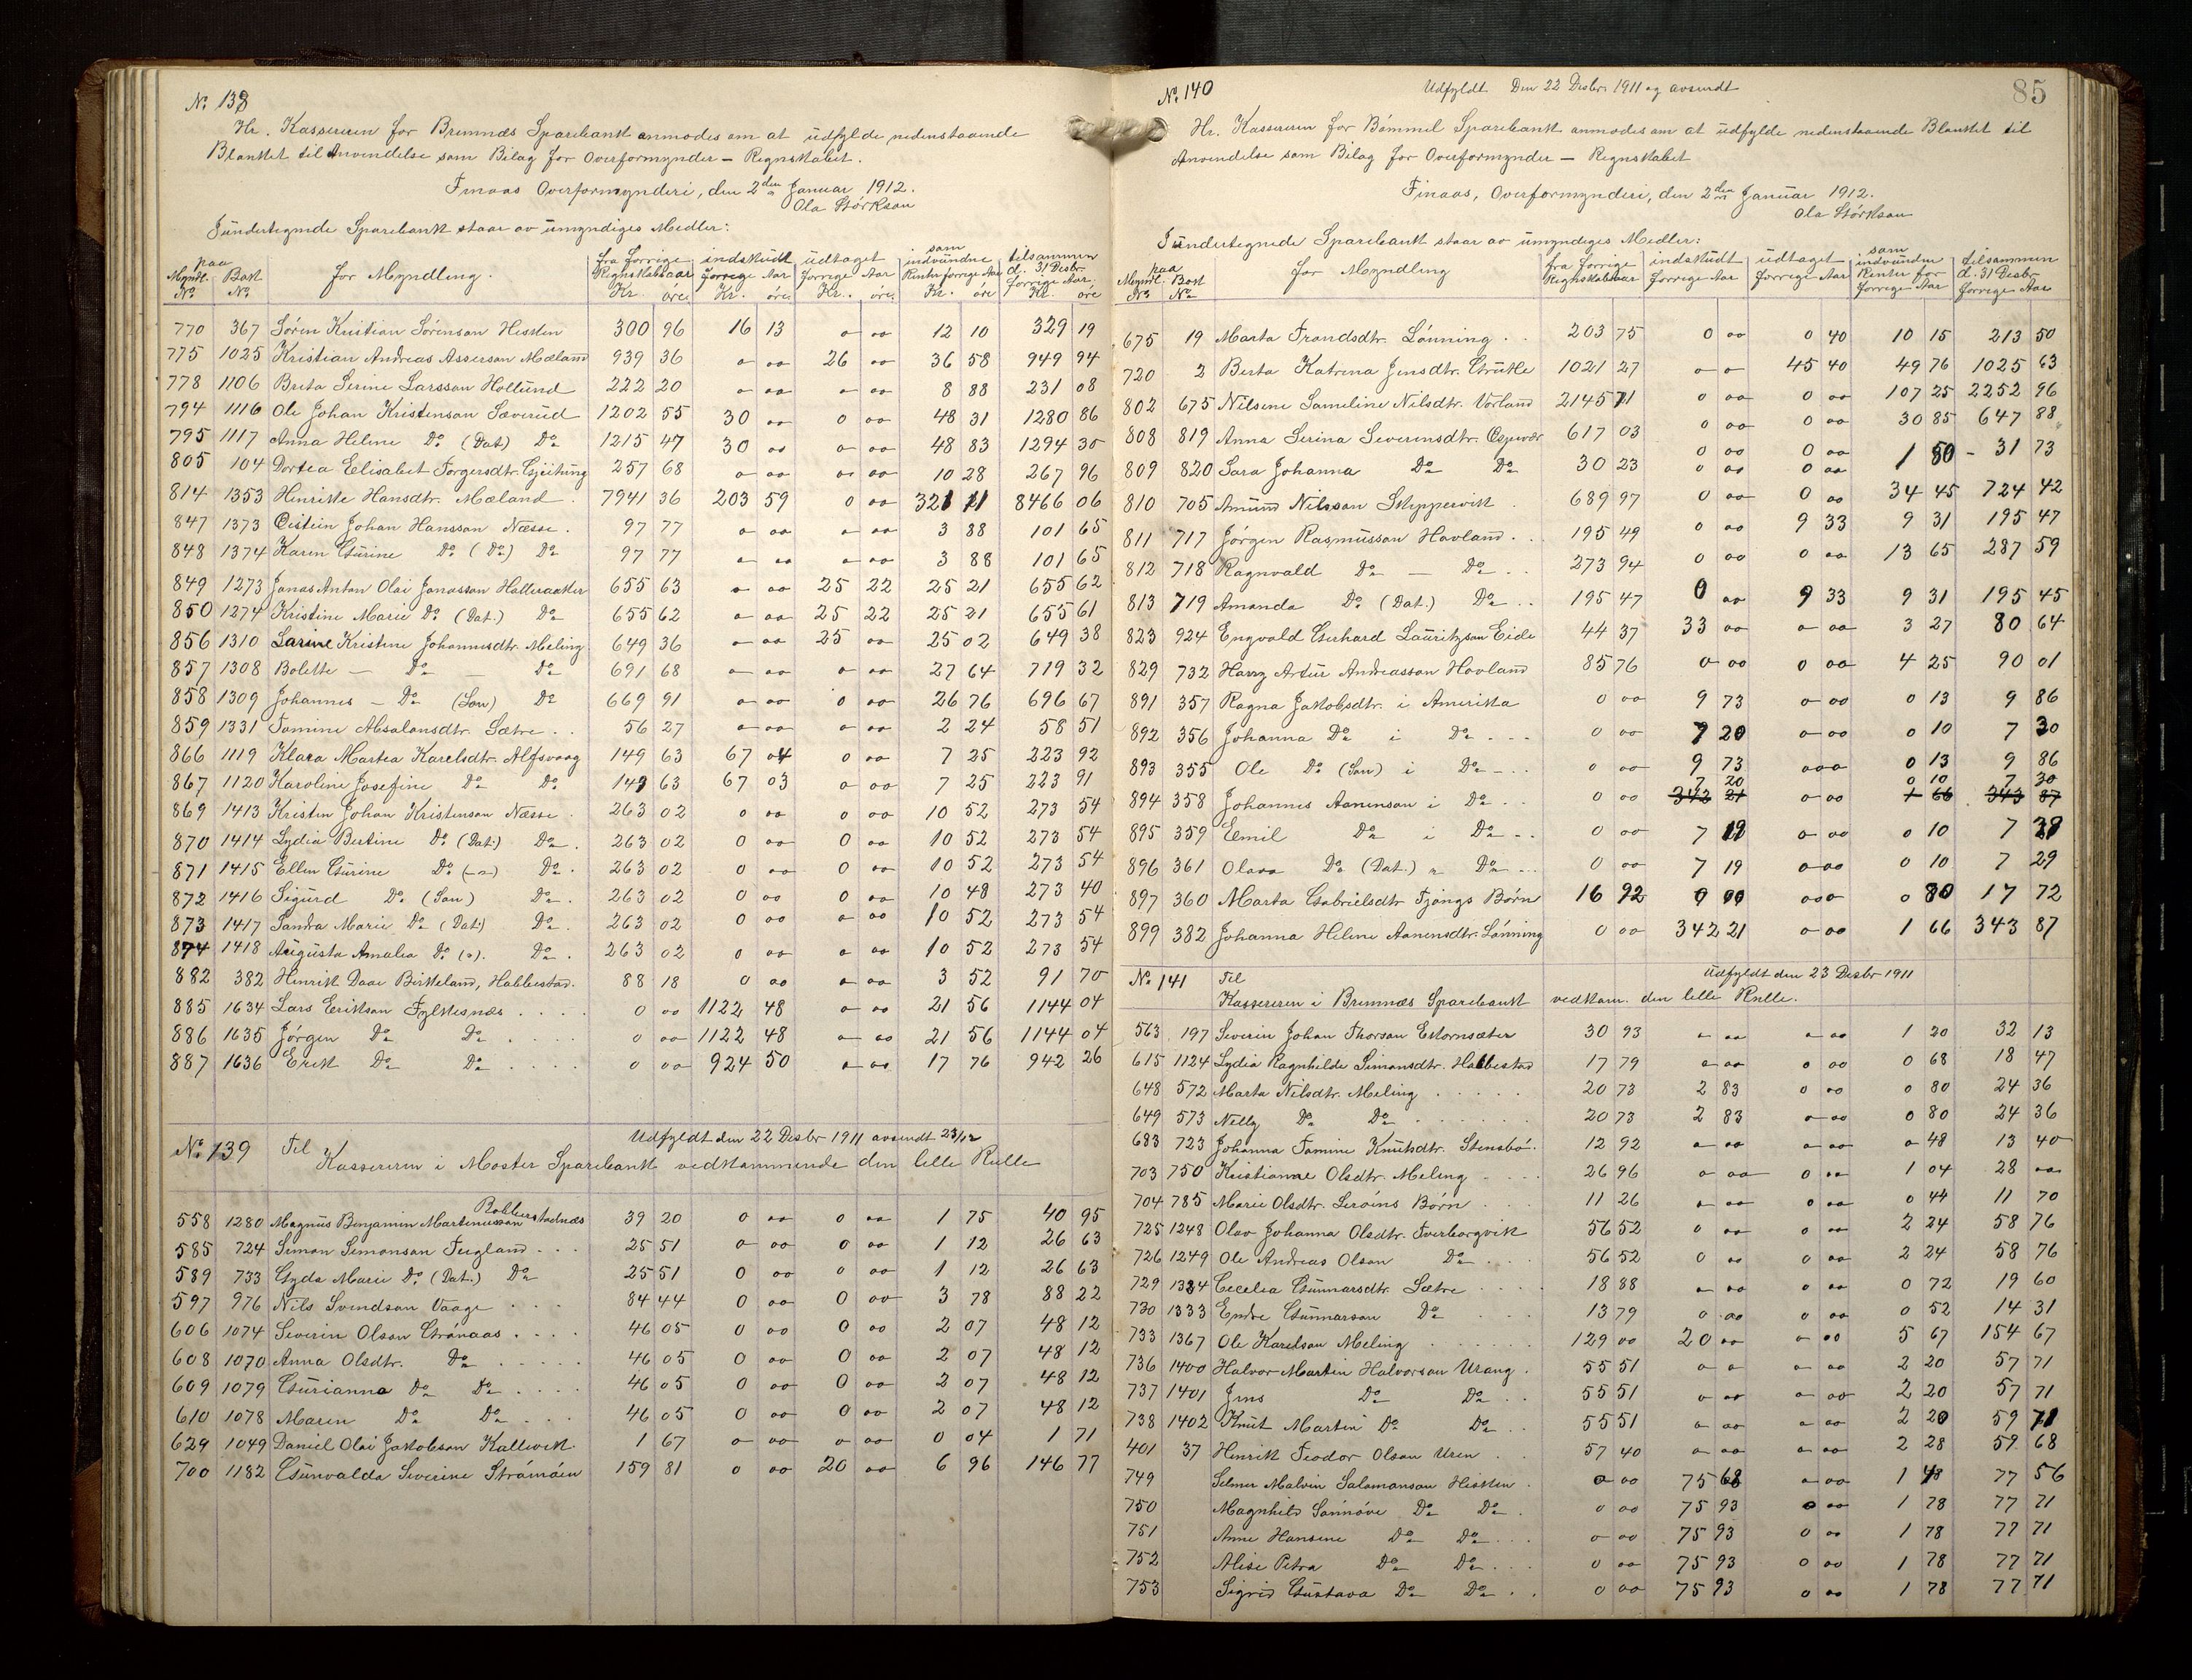 № 138
Hr. Kassereren for Bremnæs Sparebank anmodes om at udfylde nedenstaaende
Blanket til Anvendelse som Bilag for Overformynder – Regnskabet.
Finaas Overformynderi, den 2den Januar 1912.
Ola Störkson
I undertegnede Sparebank staar av umyndiges Midler:
paa Myndl. № Bok № for Myndling. fra forrige Regnskabsaar Kr. öre indskudt forrige Aar Kr. öre udtaget forrige Aar Kr. öre som indvundne Renter forrige Aar Kr. öre tilsammen d. 31 Desbr. forrige Aar. Kr. öre
770 367 Sören Kristian Sörenson Hisken 300 96 16 13 0 00 12 10 329 19
775 1025 Kristian Andreas Asserson Mæland 939 36 0 00 26 00 36 58 949 94
778 1106 Breta Serine Larsson Hollund 222 20 0 00 0 00 8 88 231 08
794 1116 Ole Johan Kristenson Sæverud 1202 55 30 00 0 00 48 31 1280 86
795 1117 Anna Helene Do (Dat) Do 1215 47 30 00 0 00 48 83 1294 30
805 104 Dortea Elisabet Torgersdtr. Gjeitung 257 68 0 00 0 00 10 28 267 96
814 1353 Henrikke Hansdtr. Mæland 7941 36 203 59 0 00 321 11 8466 06
847 1373 Eistein Johan Hansson Næsse. 97 77 0 00 0 00 3 88 101 65
848 1374 Karen Gurine Do (Do) Do 97 77 0 00 0 00 3 88 101 65
849 1273 Jonas Anton Olai Jonasson Halleraaker 655 63 0 00 25 22 25 21 655 62
850 1274 Kristine Marie Do (Dat.) Do 655 62 0 00 25 22 25 21 655 61
856 1310 Larine Kristine Johannesdtr. Meling 649 36 0 00 25 00 25 02 649 38
857 1308 Bolette – Do – Do 691 68 0 00 0 00 27 64 719 32
858 1309 Johannes – Do (Son) Do 669 91 0 00 0 00 26 76 696 67
859 1331 Tomine Absalonsdtr. Sætre . . 56 27 0 00 0 00 2 24 58 51
866 1119 Klara Martea Karelsdtr. Alfsvaag 149 63 67 04 0 00 7 25 223 92
867 1120 Karoline Josefine Do Do 149 63 67 03 0 00 7 25 223 91
869 1413 Kristen Johan Kristenson Næsse . 263 02 0 00 0 00 10 52 273 54
870 1414 Lydia Bertine Do (Dat.) Do . 263 02 0 00 0 00 10 52 273 54
871 1415 Ellen Gurine Do (–"–) Do . 263 02 0 00 0 00 10 52 273 54
872 1416 Sigurd Do (Son) Do . 263 02 0 00 0 00 10 48 273 40
873 1417 Sandra Marie Do (Dat.) Do . 263 02 0 00 0 00 10 52 273 54
874 1418 Augusta Amalia Do (").  Do . 263 02 0 00 0 00 10 52 273 54
882 382 Henrik Daae Birkeland, Habbestad. 88 18 0 00 0 00 3 52 91 70
885 1634 Lars Erikson Fylkesnæs . . . . 0 00 1122 48 0 00 21 56 1144 04
886 1635 Jörgen Do Do . . . . 0 00 1122 48 0 00 21 56 1144 04
887 1636 Erik Do Do . . . . 0 00 924 50 0 00 17 76 942 26
№ 139 Til Udfyldt den 22 Desbr 1911 avsendt 23/12
Kassereren i Moster Sparebank vedkommende den lille Rulle
558 1280 Magnus Benjamin Martinusson 39 20 0 00 0 00 1 75 40 95
585 724 Simon Simonson Fugland . . . 25 51 0 00 0 00 1 12 26 63
589 733 Gyda Marie Do (Dat.) Do 25 51 0 00 0 00 1 12 26 63
597 976 Nils Svendson Vaage . . . 84 44 0 00 0 00 3 78 88 22
606 1074 Severin Olson Grönaas . . . . 46 05 0 00 0 00 2 07 48 12
608 1070 Anna Olsdtr. Do . . . . . 46 05 0 00 0 00 2 07 48 12
609 1079 Gurianna Do Do . . . . 46 05 0 00 0 00 2 07 48 12
610 1078 Maren Do Do . . . 46 05 0 00 0 00 2 07 48 12
629 1049 Daniel Olai Jakobson Kallevik. 1 67 0 00 0 00 0 04 1 71
700 1182 Gunvalda Severine Strömöen 159 81 0 00 20 00 6 96 146 77
85
№ 140 Udfyldt Den 22 Desbr. 1911 og avsendt
Hr. Kassereren for Bömmel Sparebank anmodes om at udfylde nedenstaaende Blanket til
Anvendelse som Bilag for Overformynder – Regnskabet
Finaas, Overformynderi, den 2den Januar 1912.
Ola Störkson
I undertegnede Sparebank staar av umyndiges Midler:
paa Myndl. № Bok № for Myndling fra forrige Regnskabsaar indskudt forrige Aar udtaget forrige Aar som indvundne Renter for forrige Aar tilsammen d. 31 Desbr. forrige Aar
675 19 Marta Trondsdtr. Lönning . . 203 75 0 00 0 40 10 15 213 50
720 2 Berta Katrina Jensdtr. Grutle 1021 27 0 0 45 40 49 76 1025 63
802 675 Nilsine Sameline Nilsdtr. Vorland 2145 71 0 00 0 00 107 25 2252 96
808 819 Anna Serina Severinsdtr. Espevær 617 03 0 00 0 00 30 85 647 88
809 820 Sara Johanna Do Do 30 23 0 00 0 00 1 50 – 31 73
810 705 Amund Nilsson Skippervik . 689 97 0 00 0 00 34 45 724 42
811 717 Jörgen Rasmusson Hovland . . 195 49 0 00 9 33 9 31 195 47
812 718 Ragnvald Do — Do . . 273 94 0 00 0 00 13 65 287 59
813 719 Amanda Do (Dat.) Do . . 195 47 0 00 9 33 9 31 195 45
823 924 Engvald Gerhard Lauritzson Eide 44 37 33 00 0 00 3 27 80 64
829 732 Harry Artur Andreasson Hovland 85 76 0 00 0 00 4 25 90 01
891 357 Ragna Jakobsdtr. i Amerika 0 00 9 73 0 00 0 13 9 86
892 356 Johanna Do i Do . . . 0 00 7 20 0 00 0 10 7 30
893 355 Ole Do (Son) i Do – . . 0 00 9 73 0 00 0 13 9 86
7 20 0 10 7 30
894 358 Johannes Aanenson i Do . . 0 00 342 21 0 00 1 66 343 87
895 359 Emil Do i Do – . 0 00 7 19 0 00 0 10 7 29
896 361 Olava Do (Dat.) " Do – . . 0 00 7 19 0 00 0 10 7 29
897 360 Marta Gabrielsdtr Tjongs Börn 16 92 0 00 0 00 0 80 17 72
899 382 Johanna Helene Aanensdtr. Lönning 0 00 342 21 0 00 1 66 343 87
№ 141 Til Udfyldt den 23 Desbr 1911
Kassereren i Bremnæs Sparebank vedkom. den lille Rulle.
563 197 Severin Johan Thorson Estornsæter 30 93 0 00 0 00 1 20 32 13
615 1124 Lydia Ragnhilde Simonsdtr. Habbestad 17 79 0 00 0 00 0 68 18 47
648 572 Marta Nilsdtr. Meling . . . . . 20 73 2 83 0 00 0 80 24 36
649 573 Nelly Do Do . . . . . 20 73 2 83 0 00 0 80 24 36
683 723 Johanna Tomine Knutsdtr. Stensbö. 12 92 0 00 0 00 0 48 13 40
703 750 Kristianne Olsdtr. Meling . . . . 26 96 0 00 0 00 1 04 28 00
704 785 Marie Olsdtr. Seröins Börn . . . 11 26 0 00 0 00 0 44 11 70
725 1248 Olav Johanna Olsdtr. Tverborgvik 56 52 0 00 0 00 2 24 58 76
726 1249 Ole Andreas Olson Do . . . 56 52 0 00 0 00 2 24 58 76
729 1334 Cecelia Gunnarsdtr. Sætre . . . . 18 88 0 00 0 00 0 72 19 60
730 1333 Endre Gunnarson Do . . . 13 79 0 00 0 00 0 52 14 31
733 1367 Ole Karelson Meling . . . . . 129 00 20 00 0 00 5 67 154 67
736 1400 Halvor Martin Halvorson Urang . 55 51 0 0 0 00 2 20 57 71
737 1401 Jens Do Do . . 55 51 0 00 0 00 2 20 57 71
738 1402 Knut Martin Do Do . . 55 51 0 00 0 00 2 20 59 71
401 37 Henrik Teodor Olson Uren . . 57 40 0 00 0 00 2 28 59 68
749 Selmer Malvin Salamonson Hisken . 0 00 75 68 0 00 1 48 77 56
750 Magnhild Sönnöve Do Do . 0 00 75 93 0 00 1 78 77 71
751 Anne Hansine Do Do . . . 0 00 75 93 0 00 1 78 77 71
752 Alise Petra Do Do . . . 0 00 75 93 0 00 1 78 77 71
753 Sigrid Gustava Do Do . . 0 00 75 93 0 00 1 78 77 71